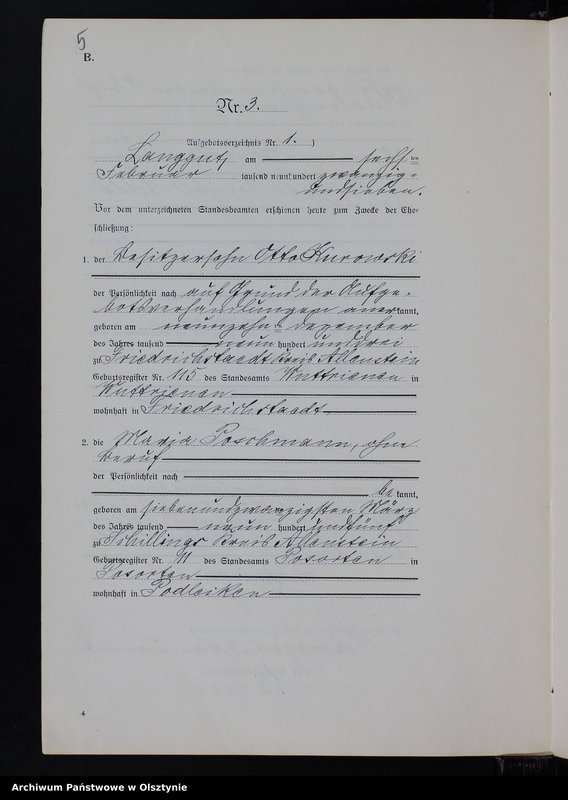 5
B.
Nr. 3.
Aufgebotsverzeichnis Nr. 1. )
Langgut, am sechsten
Februar tausend neunhundert zwanzig-
undsieben.
Vor dem unterzeichneten Standesbeamten erschienen heute zum Zwecke der Ehe-
schließung:
1. der Besitzersohn Otto Kurowski
der Persönlichkeit nach auf Grund der Aufge-
botsverhandlungen anerkannt,
geboren am neunzehn Dezember
des Jahres tausend neun hundert unddrei
zu Friedrichstaedt Kreis Allenstein
Geburtsregister Nr. 115 des Standesamts Wuttrienen in
Wuttrienen
wohnhaft in Friedrichstaedt
2. die Maria Poschmann, ohne
Beruf
der Persönlichkeit nach
bekannt,
geboren am siebenundzwanzigsten März
des Jahres tausend neun hundert undfünf
zu Schillings Kreis Allenstein
Geburtsregister Nr. 11 des Standesamts Posorten in
Posorten
wohnhaft in Podleiken
4
Archiwum Państwowe w Olsztynie